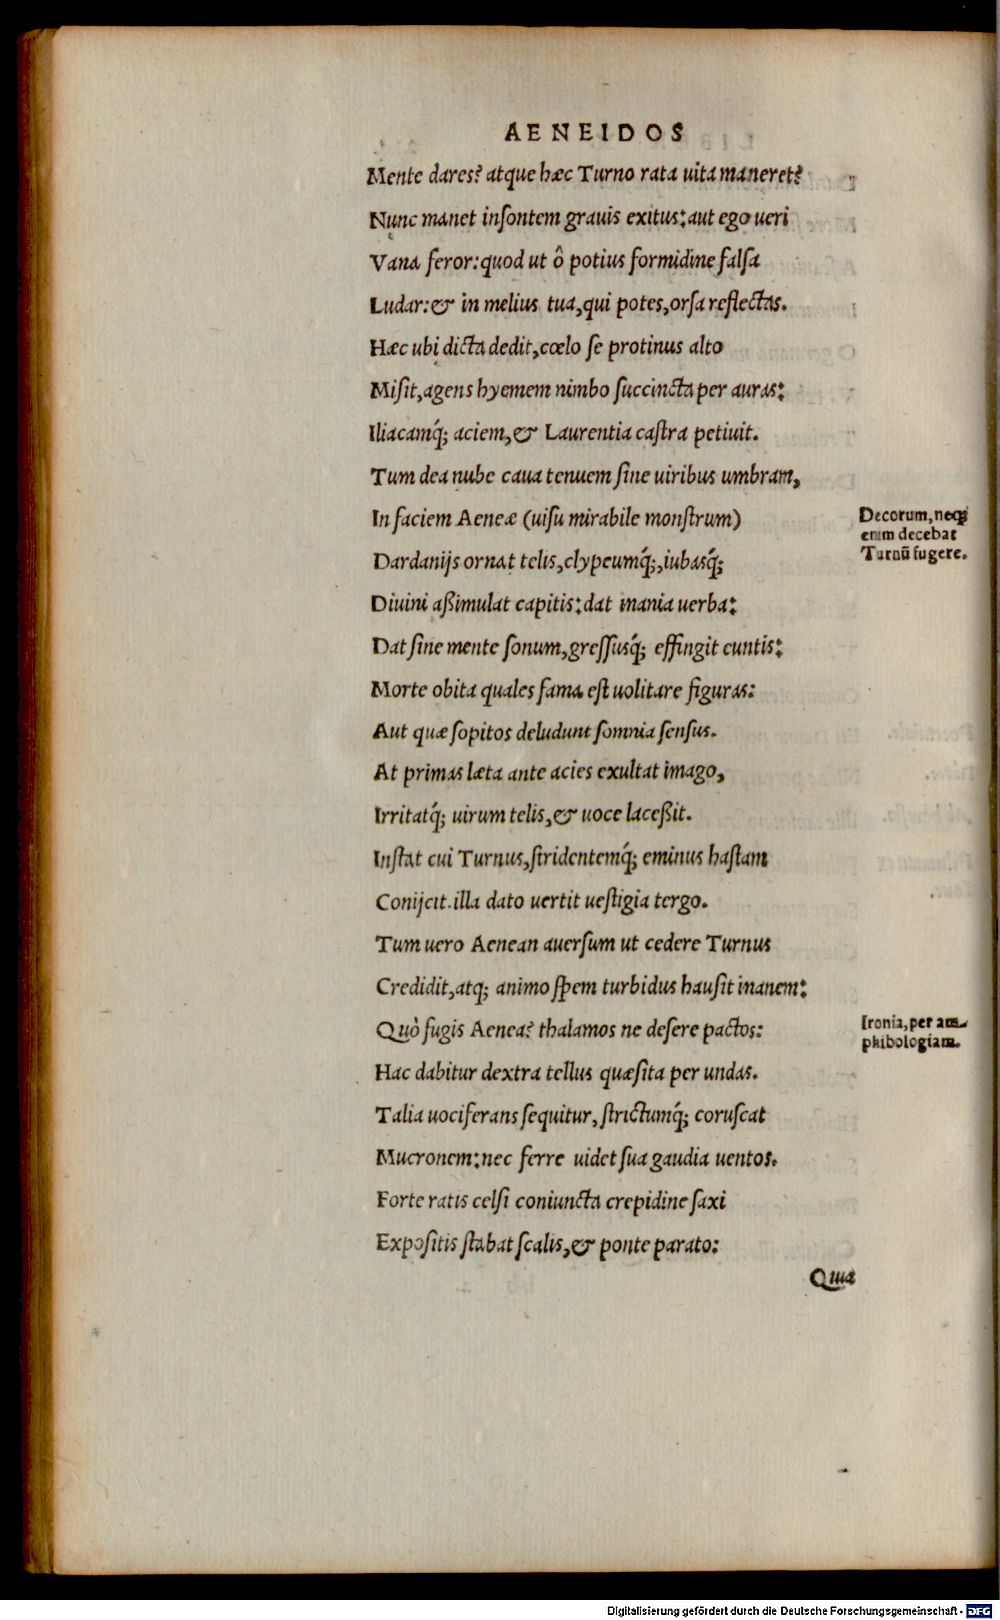 AENEIDOS
Mente dares? atque hæc Turno rata uita maneret?
Nunc manet inſontem grauis exitus: aut ego ueri
Vana feror: quod ut ô potius formidine falſa
Ludar: & in melius tua, qui potes, orſa reflectas.
Hæc ubi dicta dedit, cœlo ſe protinus alto
Miſit, agens hyemem nimbo ſuccincta per auras:
Iliacamq́; aciem, & Laurentia caſtra petiuit.
Tum dea nube caua tenuem ſine uiribus umbram,
In faciem Aeneæ (uiſu mirabile monſtrum)
Dardanijs ornat telis, clypeumq́;, iubasq́;
Diuini aßimulat capitis: dat inania uerba:
Dat ſine mente ſonum, greſſusq́; effingit euntis:
Morte obita quales fama eſt uolitare figuras:
Aut quæ ſopitos deludunt ſomnia ſenſus.
At primas læta ante acies exultat imago,
Irritatq́; uirum telis, & uoce laceßit.
Inſtat cui Turnus, ſtridentemq́; eminus haſtam
Conijcit. illa dato uertit ueſtigia tergo.
Tum uero Aenean auerſum ut cedere Turnus
Credidit, atq; animo ſpem turbidus hauſit inanem:
Quò fugis Aenea? thalamos ne deſere pactos:
Hac dabitur dextra tellus quæſita per undas.
Talia uociferans ſequitur, ſtrictumq́; coruſcat
Mucronem: nec ferre uidet ſua gaudia uentos.
Forte ratis celſi coniuncta crepidine ſaxi
Expoſitis ſtabat ſcalis, & ponte parato:
Qua
Decorum, neq;
enim decebat
Turnũ fugere.
Ironia, per am-
phibologiam.
Digitalisierung gefördert durch die Deutsche Forschungsgemeinschaft - DFG